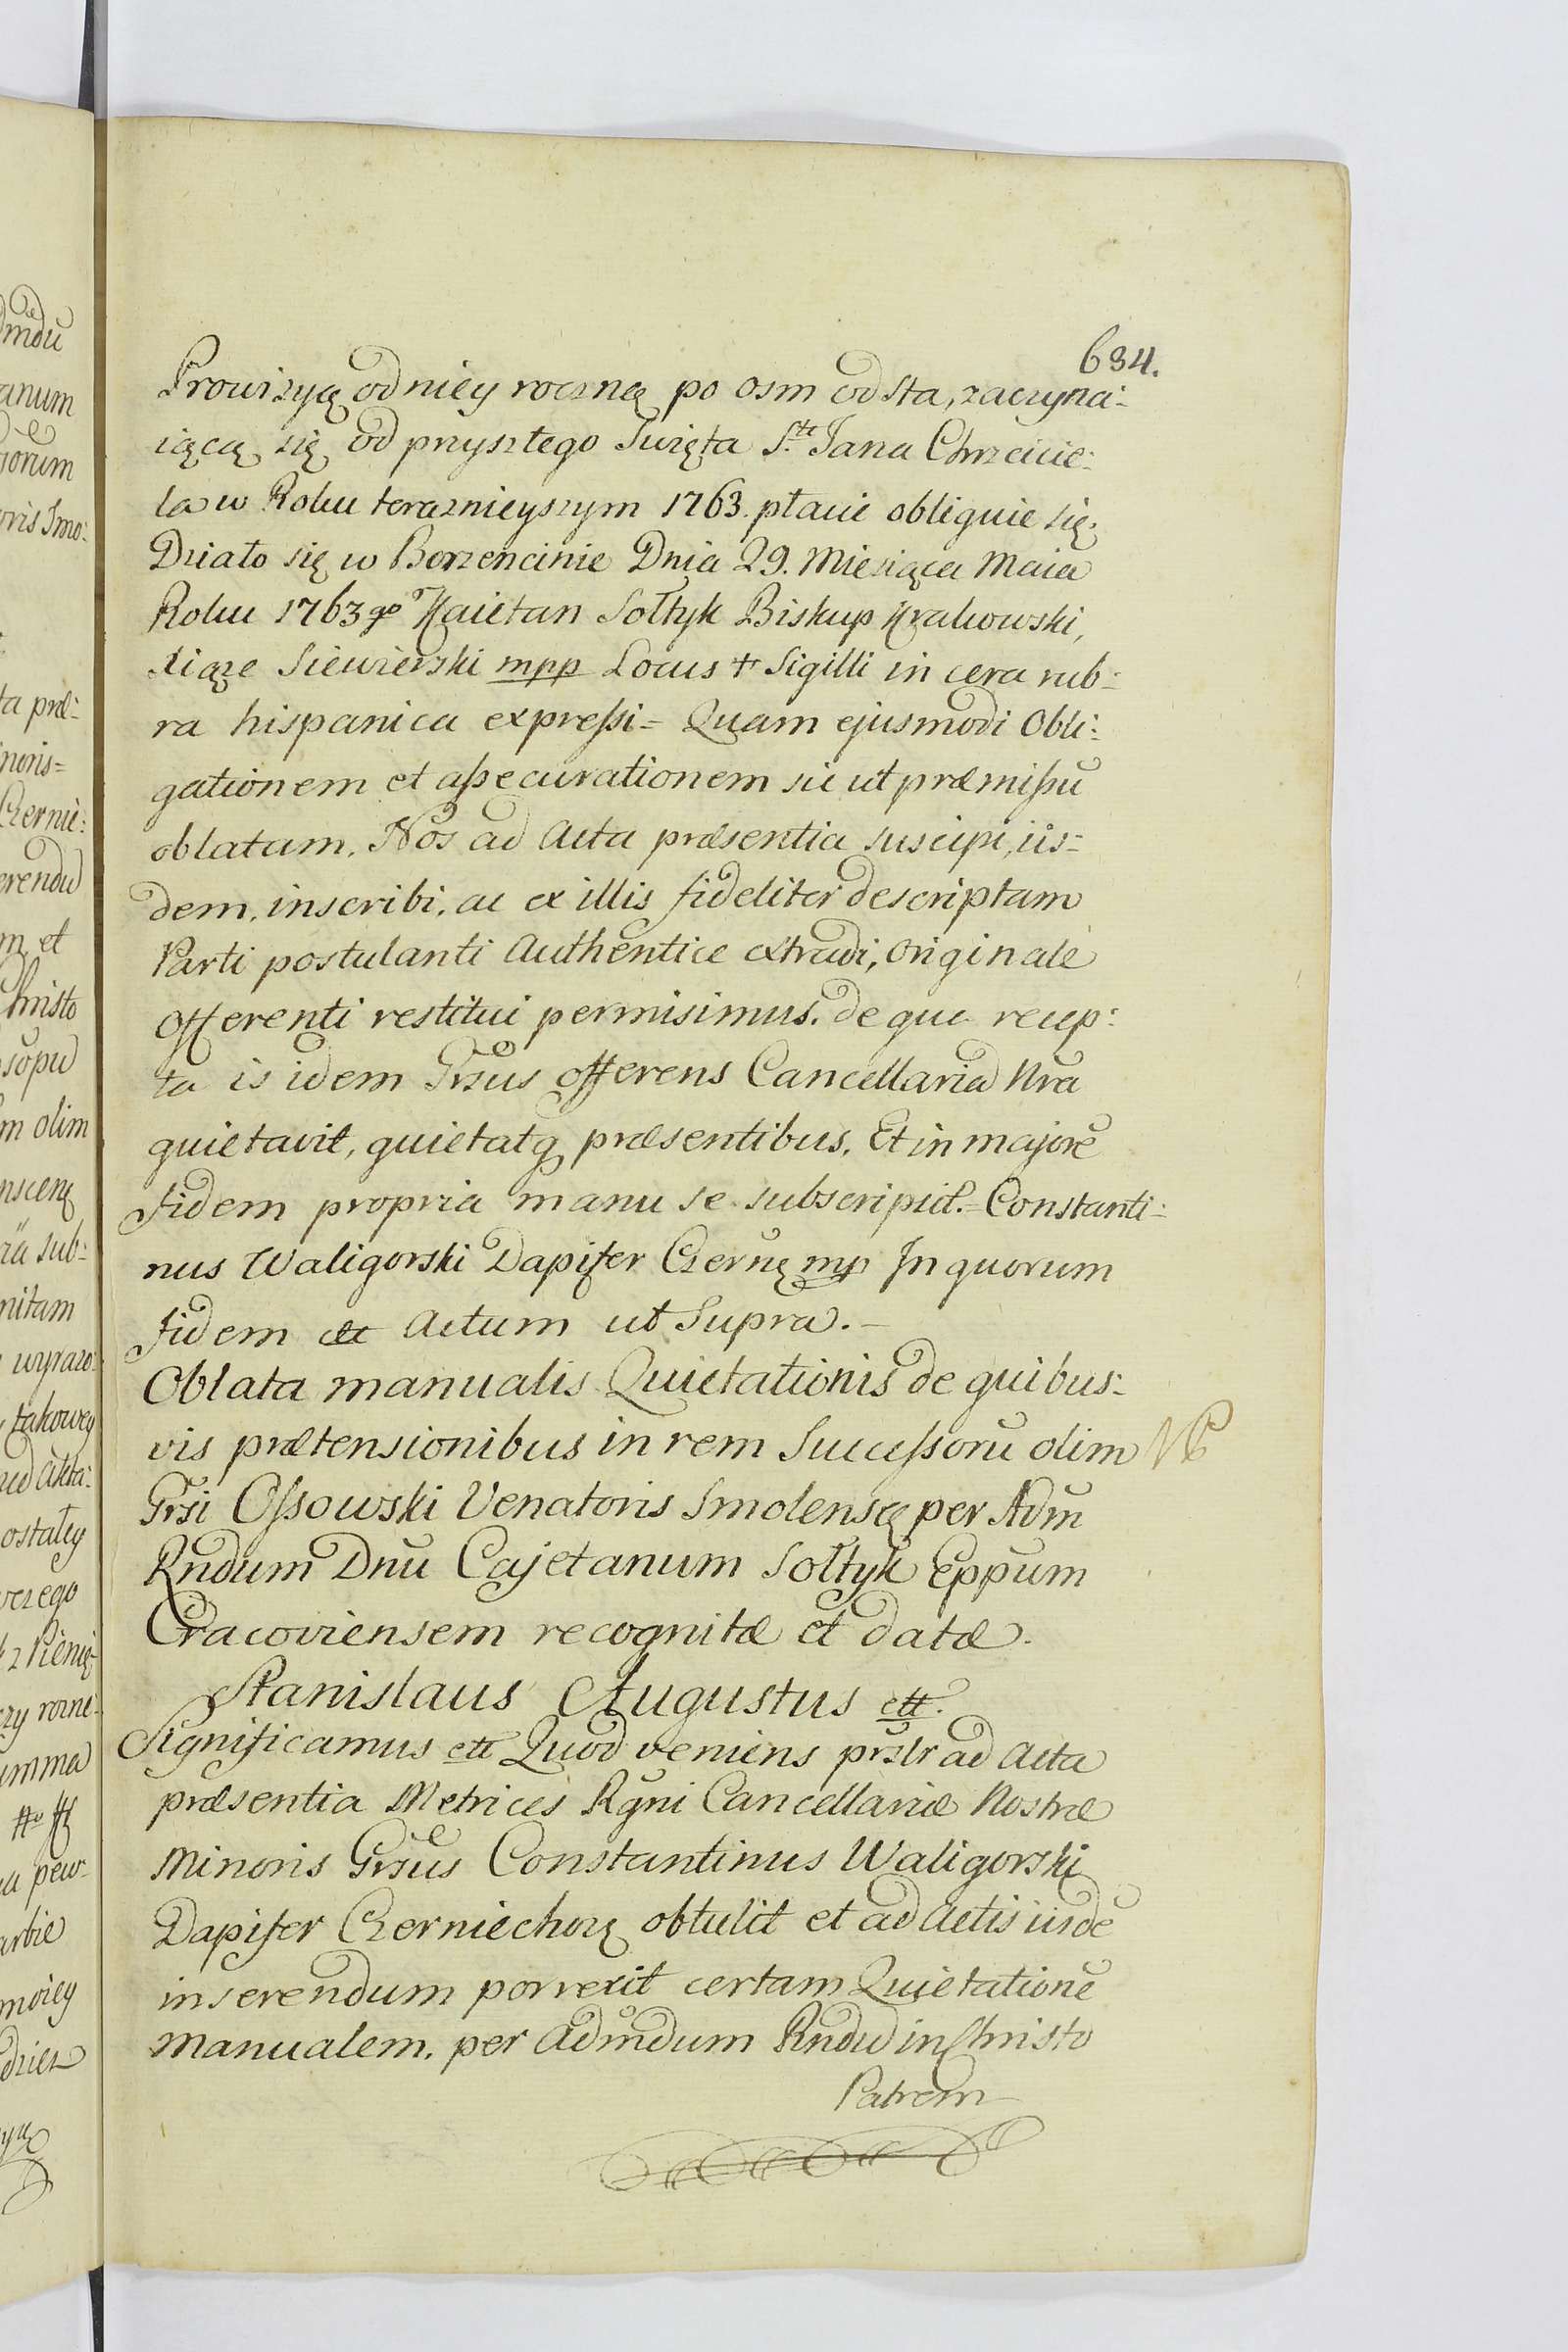 634.
Prowizyą od niey roczną po osm od sta, zaczyna:
iącą się od przyszłego Swięta S.te Jana Chrzcicie:
la w Roku teraznieyszym 1763. płacić obliguie się.
Działo się w Borzencinie Dnia 29. Miesiąca Maia
Roku 1763go Kaietan Sołtyk Biskup Krakowski,
Xiąże Siewierski mpp Locus + Sigilli in cera rub:
ra hispanica expressi = Quam ejusmodi Obli:
gationem et assecurationem sic ut præmissũ
oblatam. Nos ad Acta præsentia suscipi, iis=
dem, inscribi, ac ex illis fideliter descriptam
Parti postulanti Authentice extradi, Originale
Offerenti restitui permisimus. de qua recep:
ta is idem Grsus offerens Cancellariã Nrã
quietavit, quietatq præsentibus. Et in majorẽ
fidem propria manu se subscripsit. = Constanti:
nus Waligorski Dapifer Czernę mp In quorum
fidem ett Actum ut Supra. –
Oblata manualis Quietationis de quibus:
vis prætensionibus in rem Successorũ olim
Grsi Ossowski Venatoris Smolensę per Adm̃
Rndum Dnũ Cajetanum Sołtyk Eppum
Cracoviensem recognitæ et datæ.
Stanislaus Augustus ett.
Significamus ett Quod veniens prslr ad Acta
præsentia Metrices Rgni Cancellariæ Nostræ
Minoris Grsus Constantinus Waligorski
Dapifer Czerniechorę obtulit et ad Actis iisdẽ
inserendum porrexit certam Quietationẽ
manualem. per Admdum Rndũ in Christo
Patrem